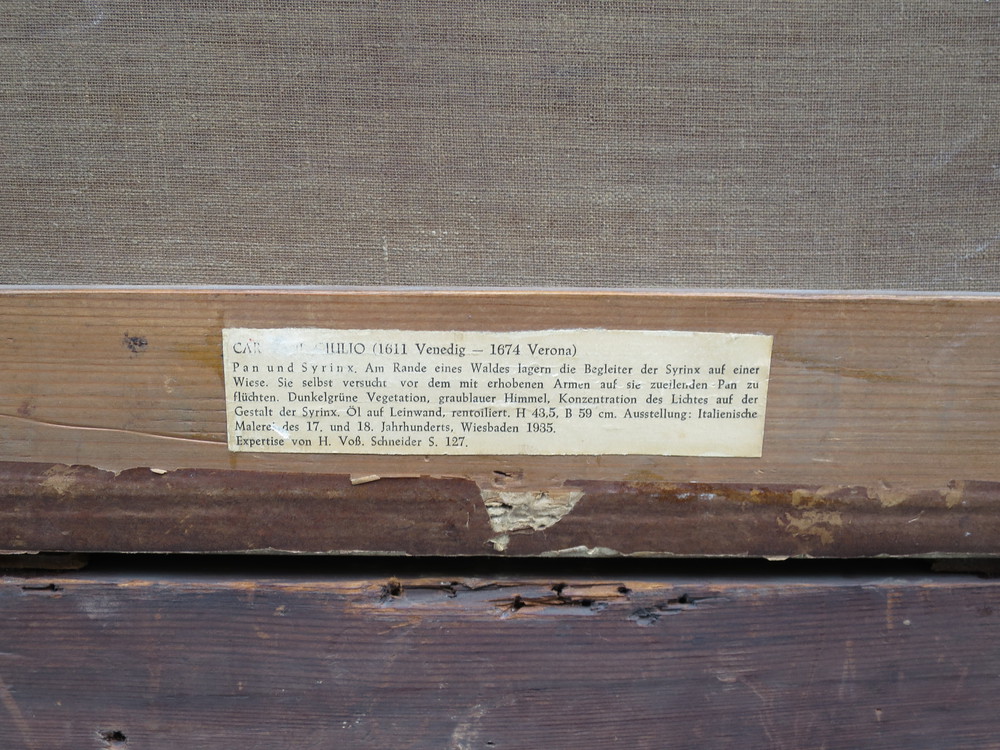 CAR GIULIO (1611 Venedig — 1674 Verona)
Pan und Syrinx. Am Rande eines Waldes lagern die Begleiter der Syrinx auf einer
Wiese. Sie selbst versucht vor dem mit erhobenen Armen auf sie zueilenden Pan zu
flüchten. Dunkelgrüne Vegetation, graublauer Himmel, Konzentration des Lichtes auf der
Gestalt der Syrinx. Öl auf Leinwand, rentoiliert. H 43,5, B 59 cm. Ausstellung: Italienische
Malerei des 17. und 18. Jahrhunderts, Wiesbaden 1935.
Expertise von H. Voß. Schneider S. 127.